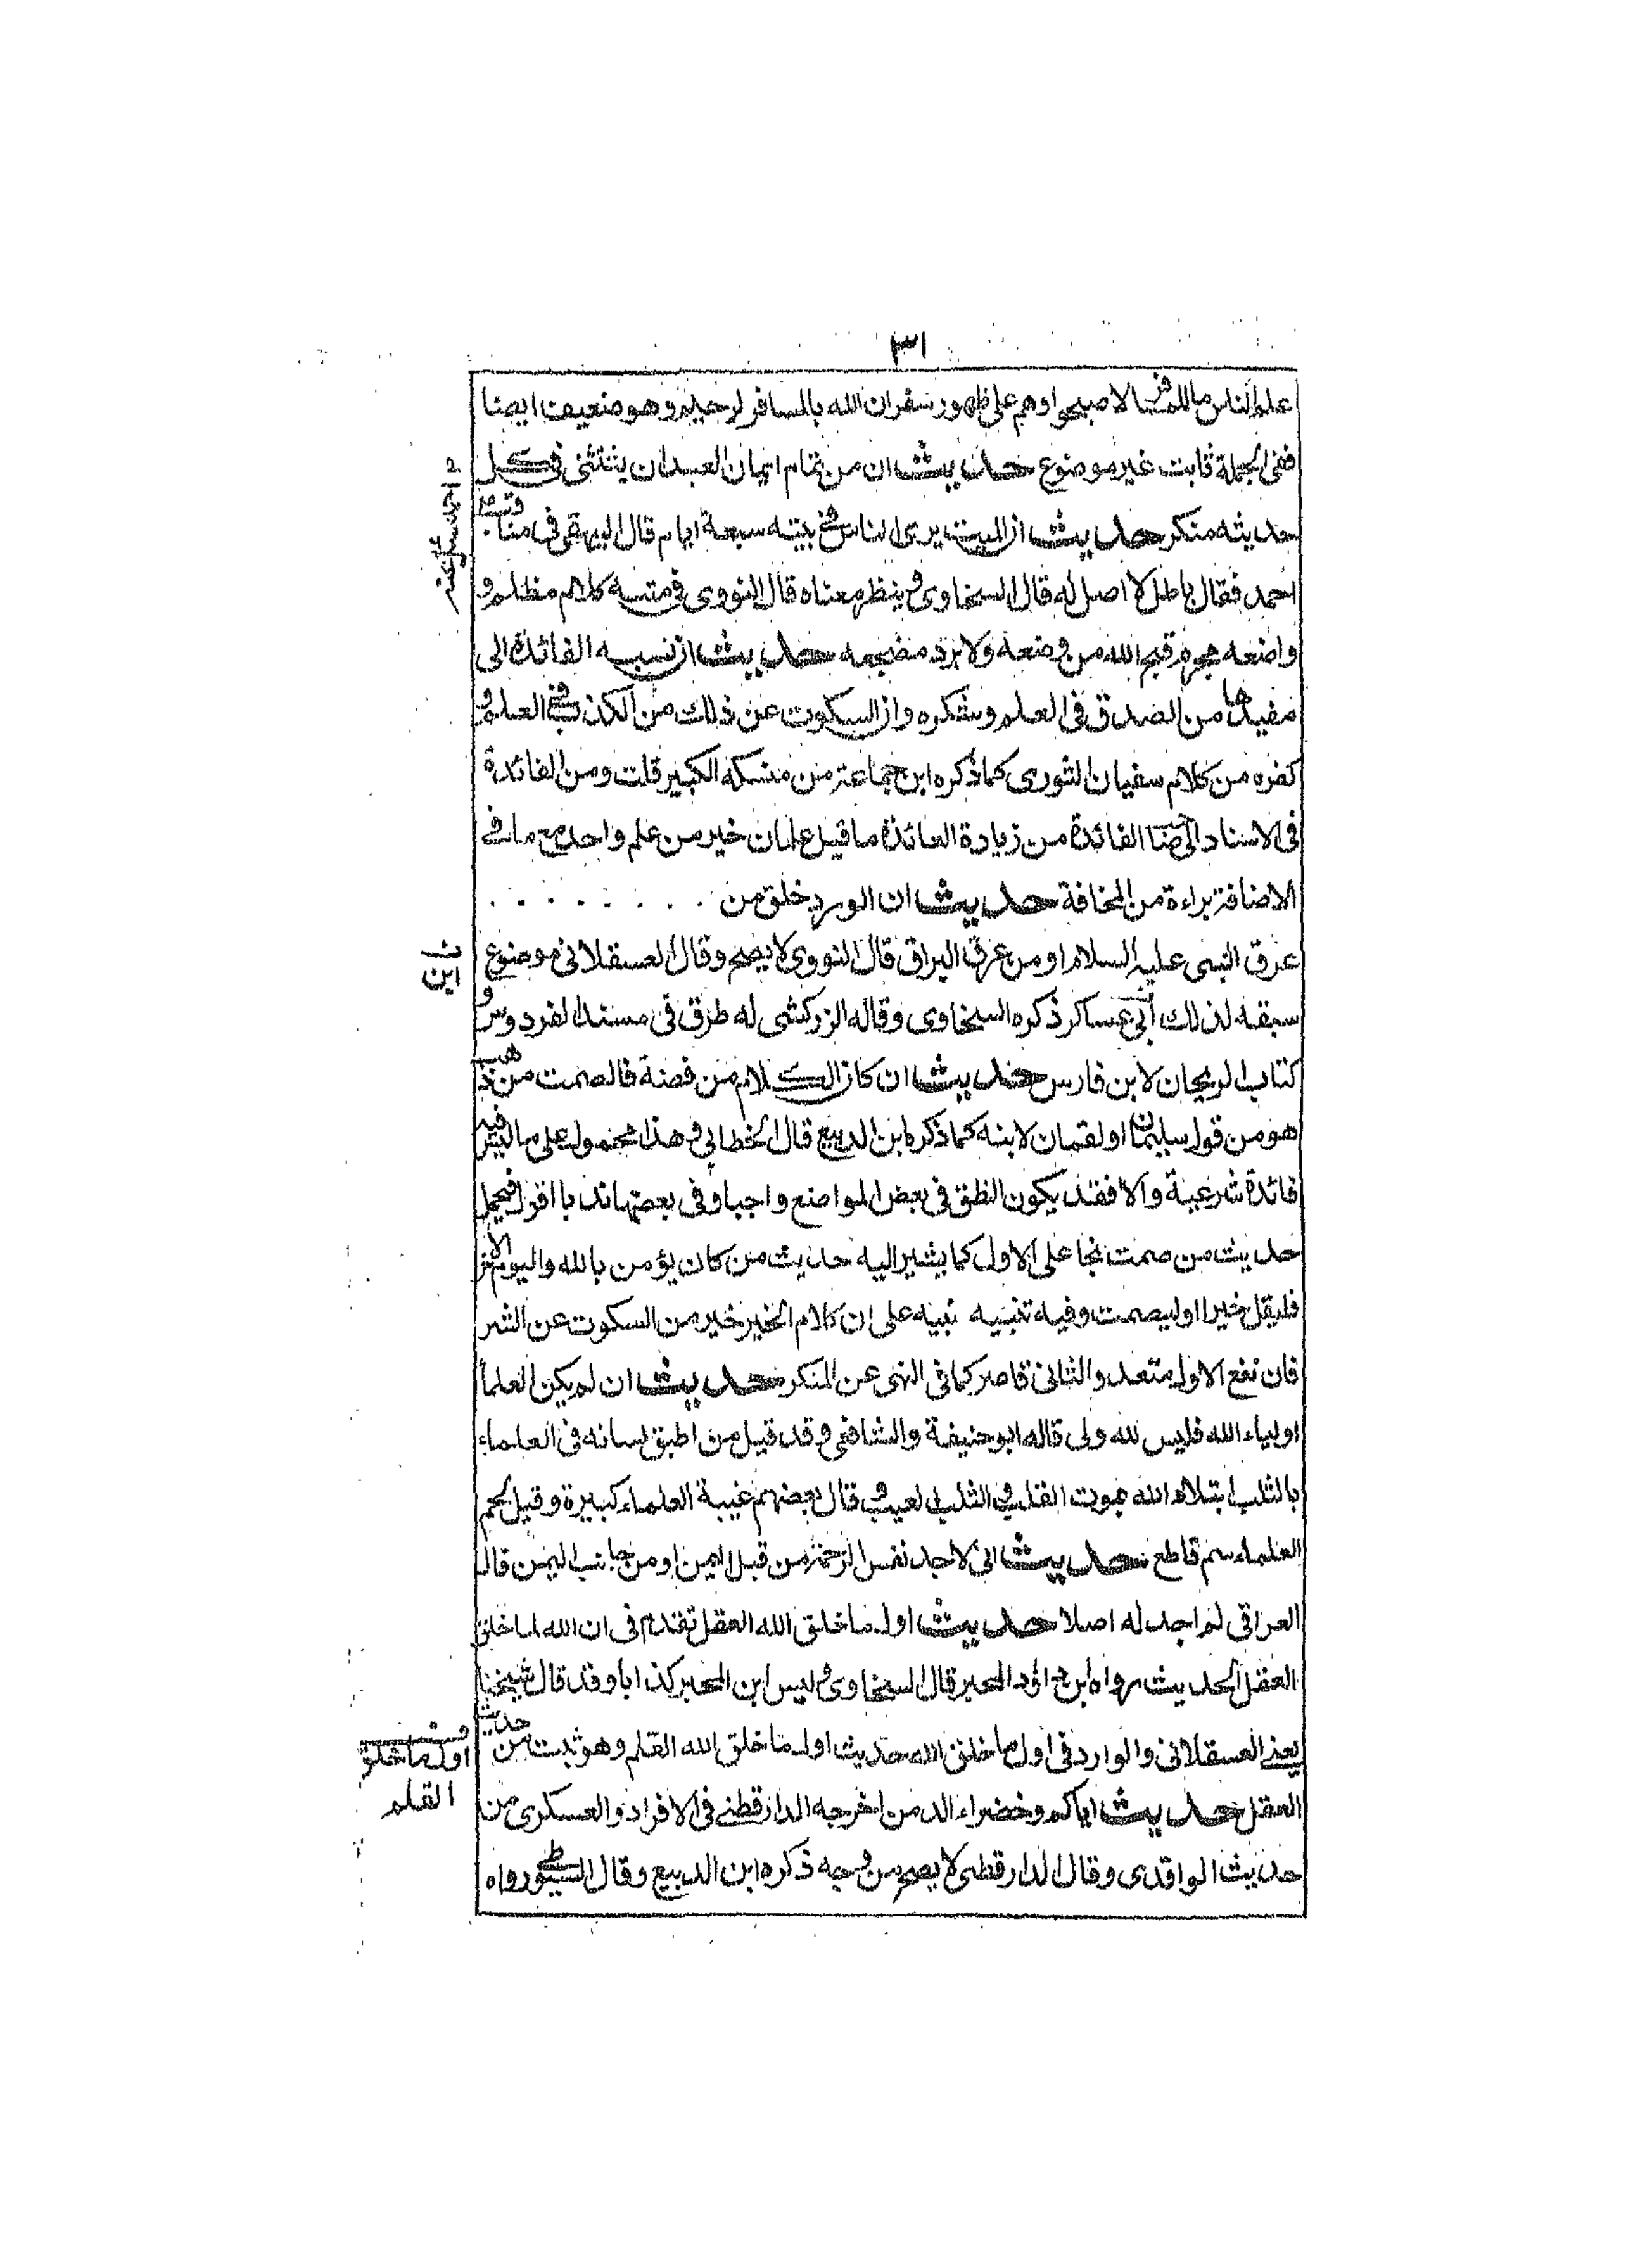 ٣١
علم الناس ما للمسافر الا صبحوا وهم على ظهور سفران الله بالمسافر لرحيم وهو ضعيف ايضا
ففى الجملة ثابت غير موضوع حديث ان من تمام ايمان العبد ان يثتثنى فى كل
حديثه منكر حديث ان الميت يرى الناس فى بيته سبعة ايام قال البيهقى فى مناقب
احمد فقال باطل لا اصل له قال السخاوى وينظر معناه قال النووى فى متنه كلام مظلم و
واضعه مجرم قبح الله من وضعه ولا برد مضجعه حديث ان نسبه الفائدة الى
مفيدها من الصدق فى العلم وشكره وان السكوت عن ذلك من الكذب فى العلم و
كفره من كلام سفيان الثورى كما ذكره ابن جماعة من منسكه الكبير قلت ومن الفائدة
فى الاسناد الفائدة من زيادة العائدة ما قيل علمان خير من علم واحد مع ما فى
الاضافة براءة من المخافة حديث ان الورد خلق من
عرق النبى عليه السلام او من عرق البراق قال النووى لا يصح وقال العسقلانى موضوع
سبقه لذلك ابن عساكر ذكره السخاوى وقاله الزركشى له طرق فى مسند الفردوس و
كتاب الريحان لابن فارس حديث ان كان الكلام من فضة فالصمت من ذهب
هو من قول سليمان او لقمان لابنه كما ذكره ابن الديبع قال الخطابى وهذا محمول على ما ليس فيه
فائدة شرعية والا فقد يكون النطق فى بعض المواضع واجبا وفى بعضها ندبا اقول فيحمل
حديث من صمت نجا على الاول كما يشير اليه حديث من كان يؤمن بالله واليوم الآخر
فليقل خيرا او ليصمت وفيه تنبيه نبيه على ان كلام الخير خير من السكوت عن الشر
فان نفع الاول متعد والثانى قاصر كما فى النهى عن المنكر حديث ان لم يكن العلماء
اولياء الله فليس لله ولى قاله ابو حنيفة والشافعى وقد قيل من اطبق لسانه فى العلماء
بالثلب ابتلاه الله بموت القلب والثلب العيب وقال بعضهم غيبة العلماء كبيرة وقيل لحم
العلماء سم قاطع حديث انى لاجد نفس الرحمن من قبل اليمن او من جانب اليمن قال
العراقى لم اجد له اصلا حديث اول ما خلق الله العقل تقدم فى ان الله لما خلق
العقل الحديث رواه ابن داؤد المحبر قال السخاوى وليس ابن المحبر كذابا وقد قال شيخنا
يعنى العسقلانى والوارد فى اول ما خلق الله حديث اول ما خلق الله القلم وهو ثبت من حديث
العقل حديث اياكم وخضراء الدمن اخرجه الدارقطنى فى الافراد والعسكرى من
حديث الواقدى وقال الدارقطنى لا يصح من وجه ذكره ابن الديبع وقال السيوطى رواه
ابن
اول ما خلق
القلم